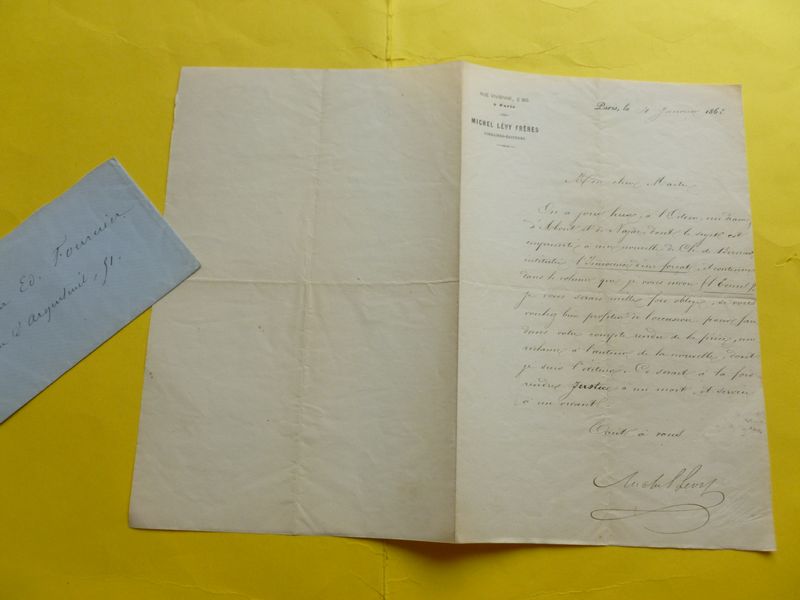 RUE VIVIENNE, 2 BIS
A PARIS
MICHEL LÉVY FRÈRES
LIBRAIRES-ÉDITEURS
Paris, le Janvier 186
Mon cher Maître
On a joué hier, à l'Odéon, un drame
d'About et de Najac dont le sujet est
emprunté à une nouvelle de Ch. de Bernard
intitulée l'Innocence d'un forçat, et contenue
dans le volume que je vous envoie
je vous serais mille fois obligé, si vous
vouliez bien profiter de l'occasion pour faire
dans votre compte rendu de la pièce, une
réclame à l'auteur de la nouvelle, dont
je suis l'éditeur. Ce serait à la fois
rendre justice à un mort, et service
à un vivant.
Tout à vous
Michel Lévy
Ed. Fournier
d'Argenteuil, 51.